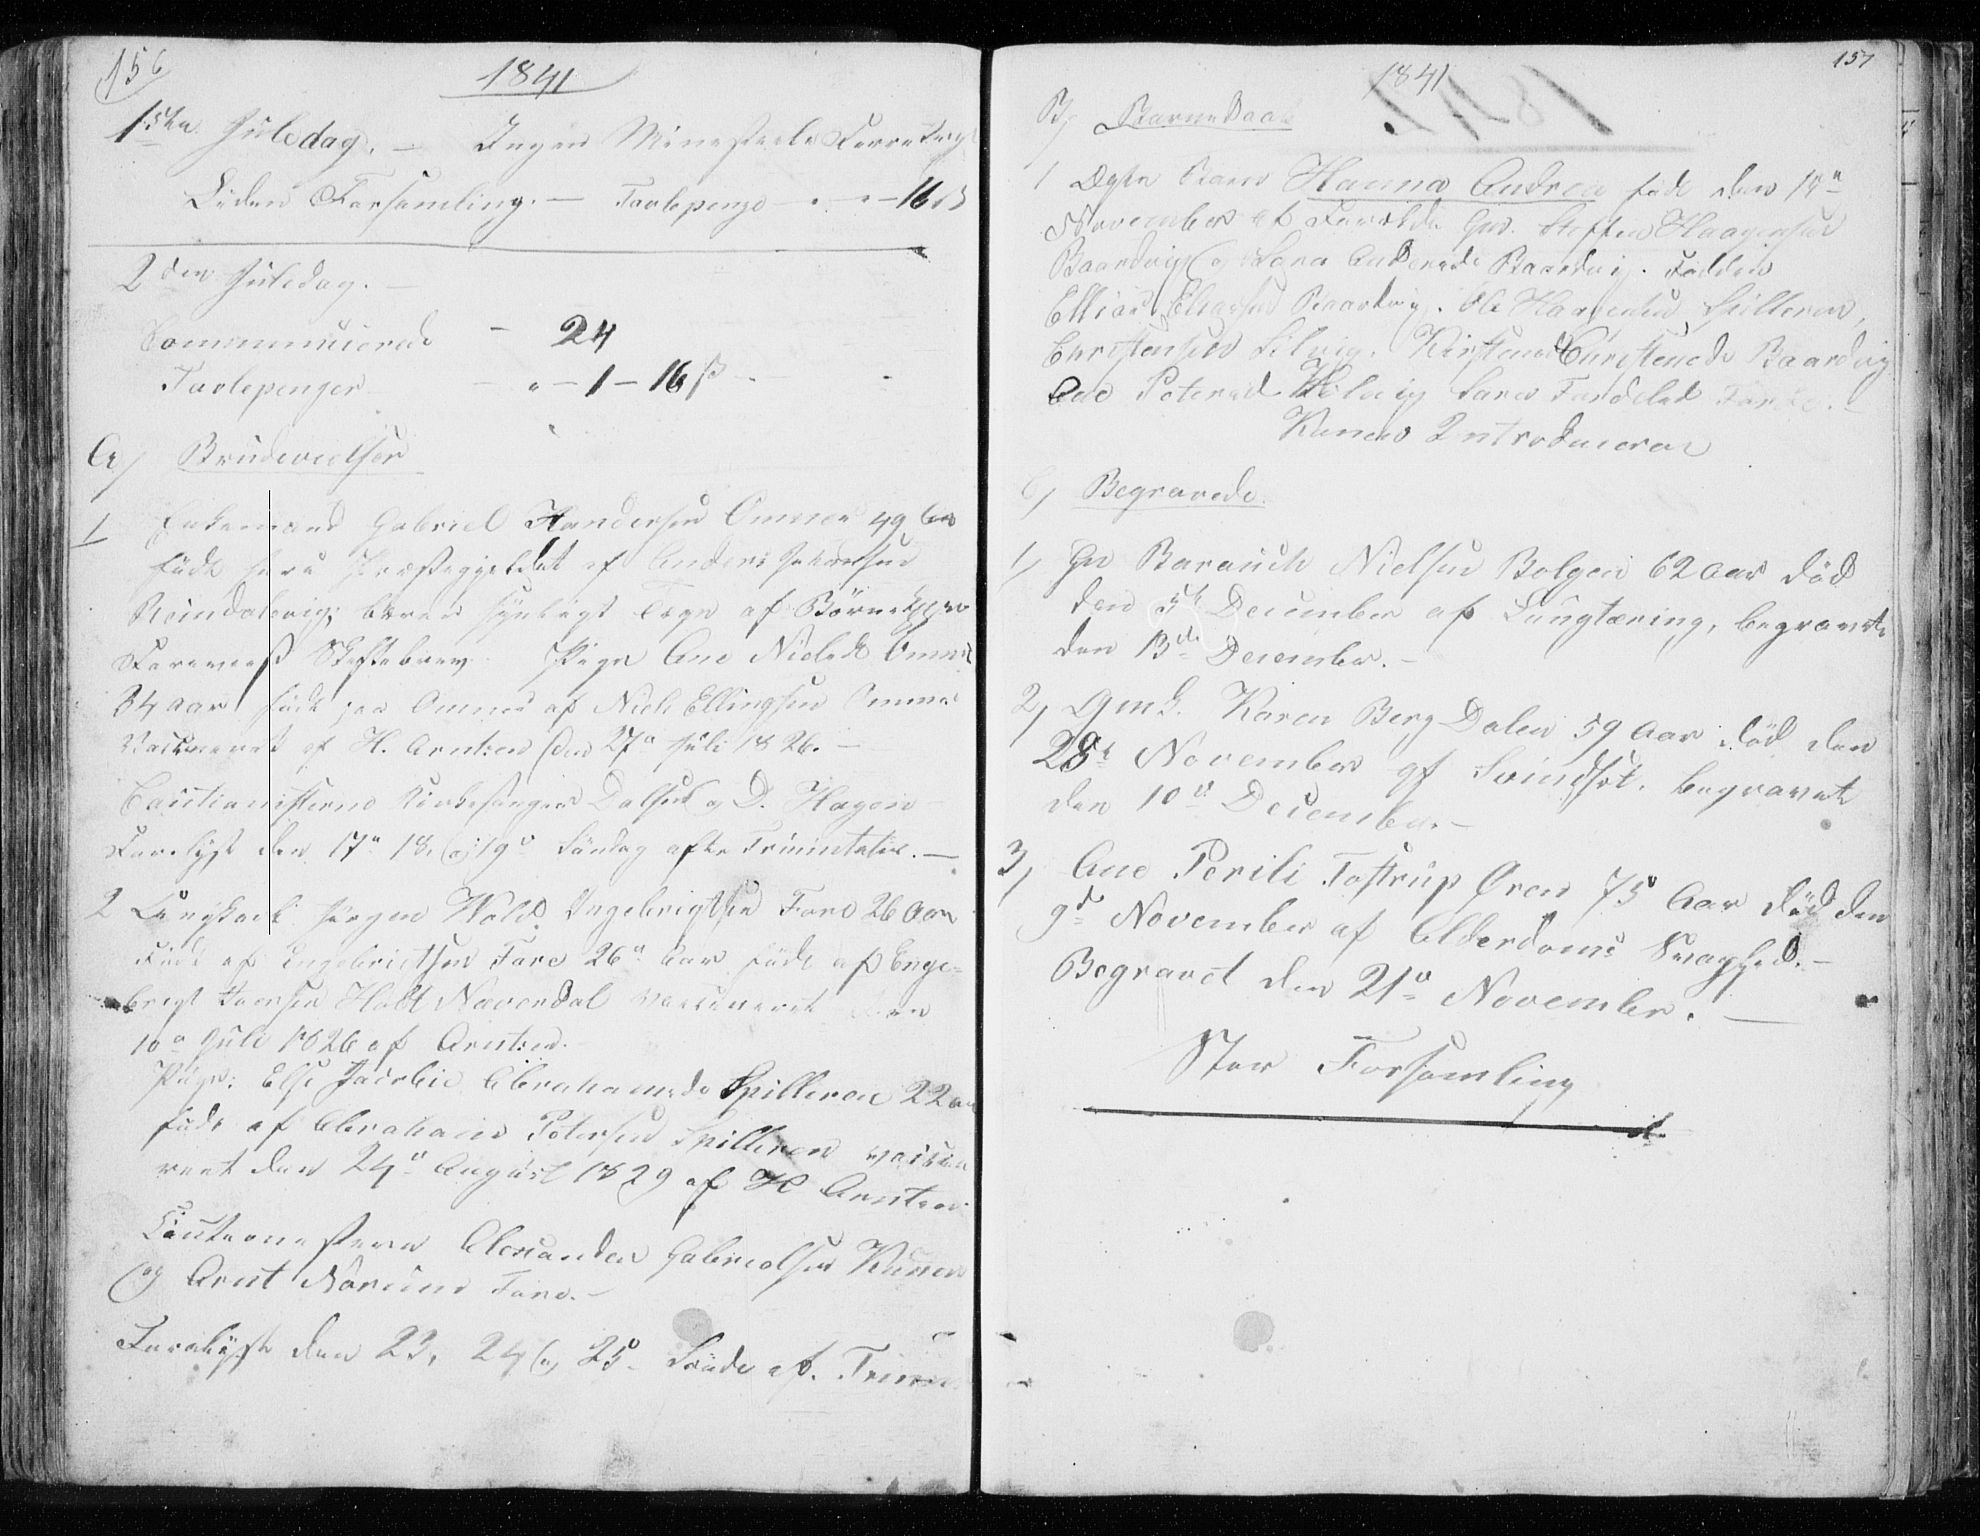 156
1841
1ste Juledag. — Ingen Ministerielle Forretng
Liden Forsamling. — Tavlepenge — . — 16 ß
2den Juledag. —
Communicerede — 24
Tavlepenger — " — 1 — 16 ß —
A, Brudevielser
1 Enkemand Gabriel Andersen Omnes 49 Aar
født her i Præstegjeldet af Anders
Reindalsvig; bærer synligt Tegn af Børnekopper
Foreviist Skiftebrev. Pige Ane Nielsd. Omnes
34 Aar født paa Omnes af Niels Ellingsen Omnes
Vaccineret af H. Arntzen den 27de Juli 1826. —
Cautionisterne Kirkesanger Dalsen og D. Hagen
Forelyst den 17de 18, og 19de Søndag efter Trinnitatis. —
2 Ungkarl Jørgen Wold Ingebrigtsen Fore 26 Aar
Født af Engebrietsen Fore 26 Aar født af Enge-
brigt Iversen Holt Næverdal vaccineret den
10de Juli 1826 af Arntzen.
Pige: Else Jacobie Abrahamsd. Spilleren 22 Aar
født af Abraham Petersen Spilleren vaccine
reet den 24de August 1829 af H Arntzen
Cautionisterne Alexander Gabrielsen Kunnen
og Arnt Norum Fore. —
Forelyst den 23, 24 og 25de Søndag ef. Trinit
157
1841
B, Barnedaab
1 Ægte Barn Hanna Andrea født den
November af Forældre Gm. Steffen Haagensen
Baardvig og Sara Andersd. Baardvig. Faddere
Ellias Eliassen Baardvig. Ole Haagensen Spilleren,
Christensen Silvig. Kirsten Christensd. Baardvig
Ane Petersd. Silvig Sara Fore. —
Konen Introduceret
C, Begravede.
1, Gm Barauch Nielsen Bolgen 62 Aar død
den 5te December af Lungtæring, begravet
den 13de December. —
2, Gmk. Karen Berg Dalen 59 Aar død den
28de November af Svindsot. begravet
den 10de December. —
3, Ane Perili Tostrup Øren 75 Aar død den
9de November af Alderdoms Svaghed. —
Begravet den 21de November. —
Stor Forsamling